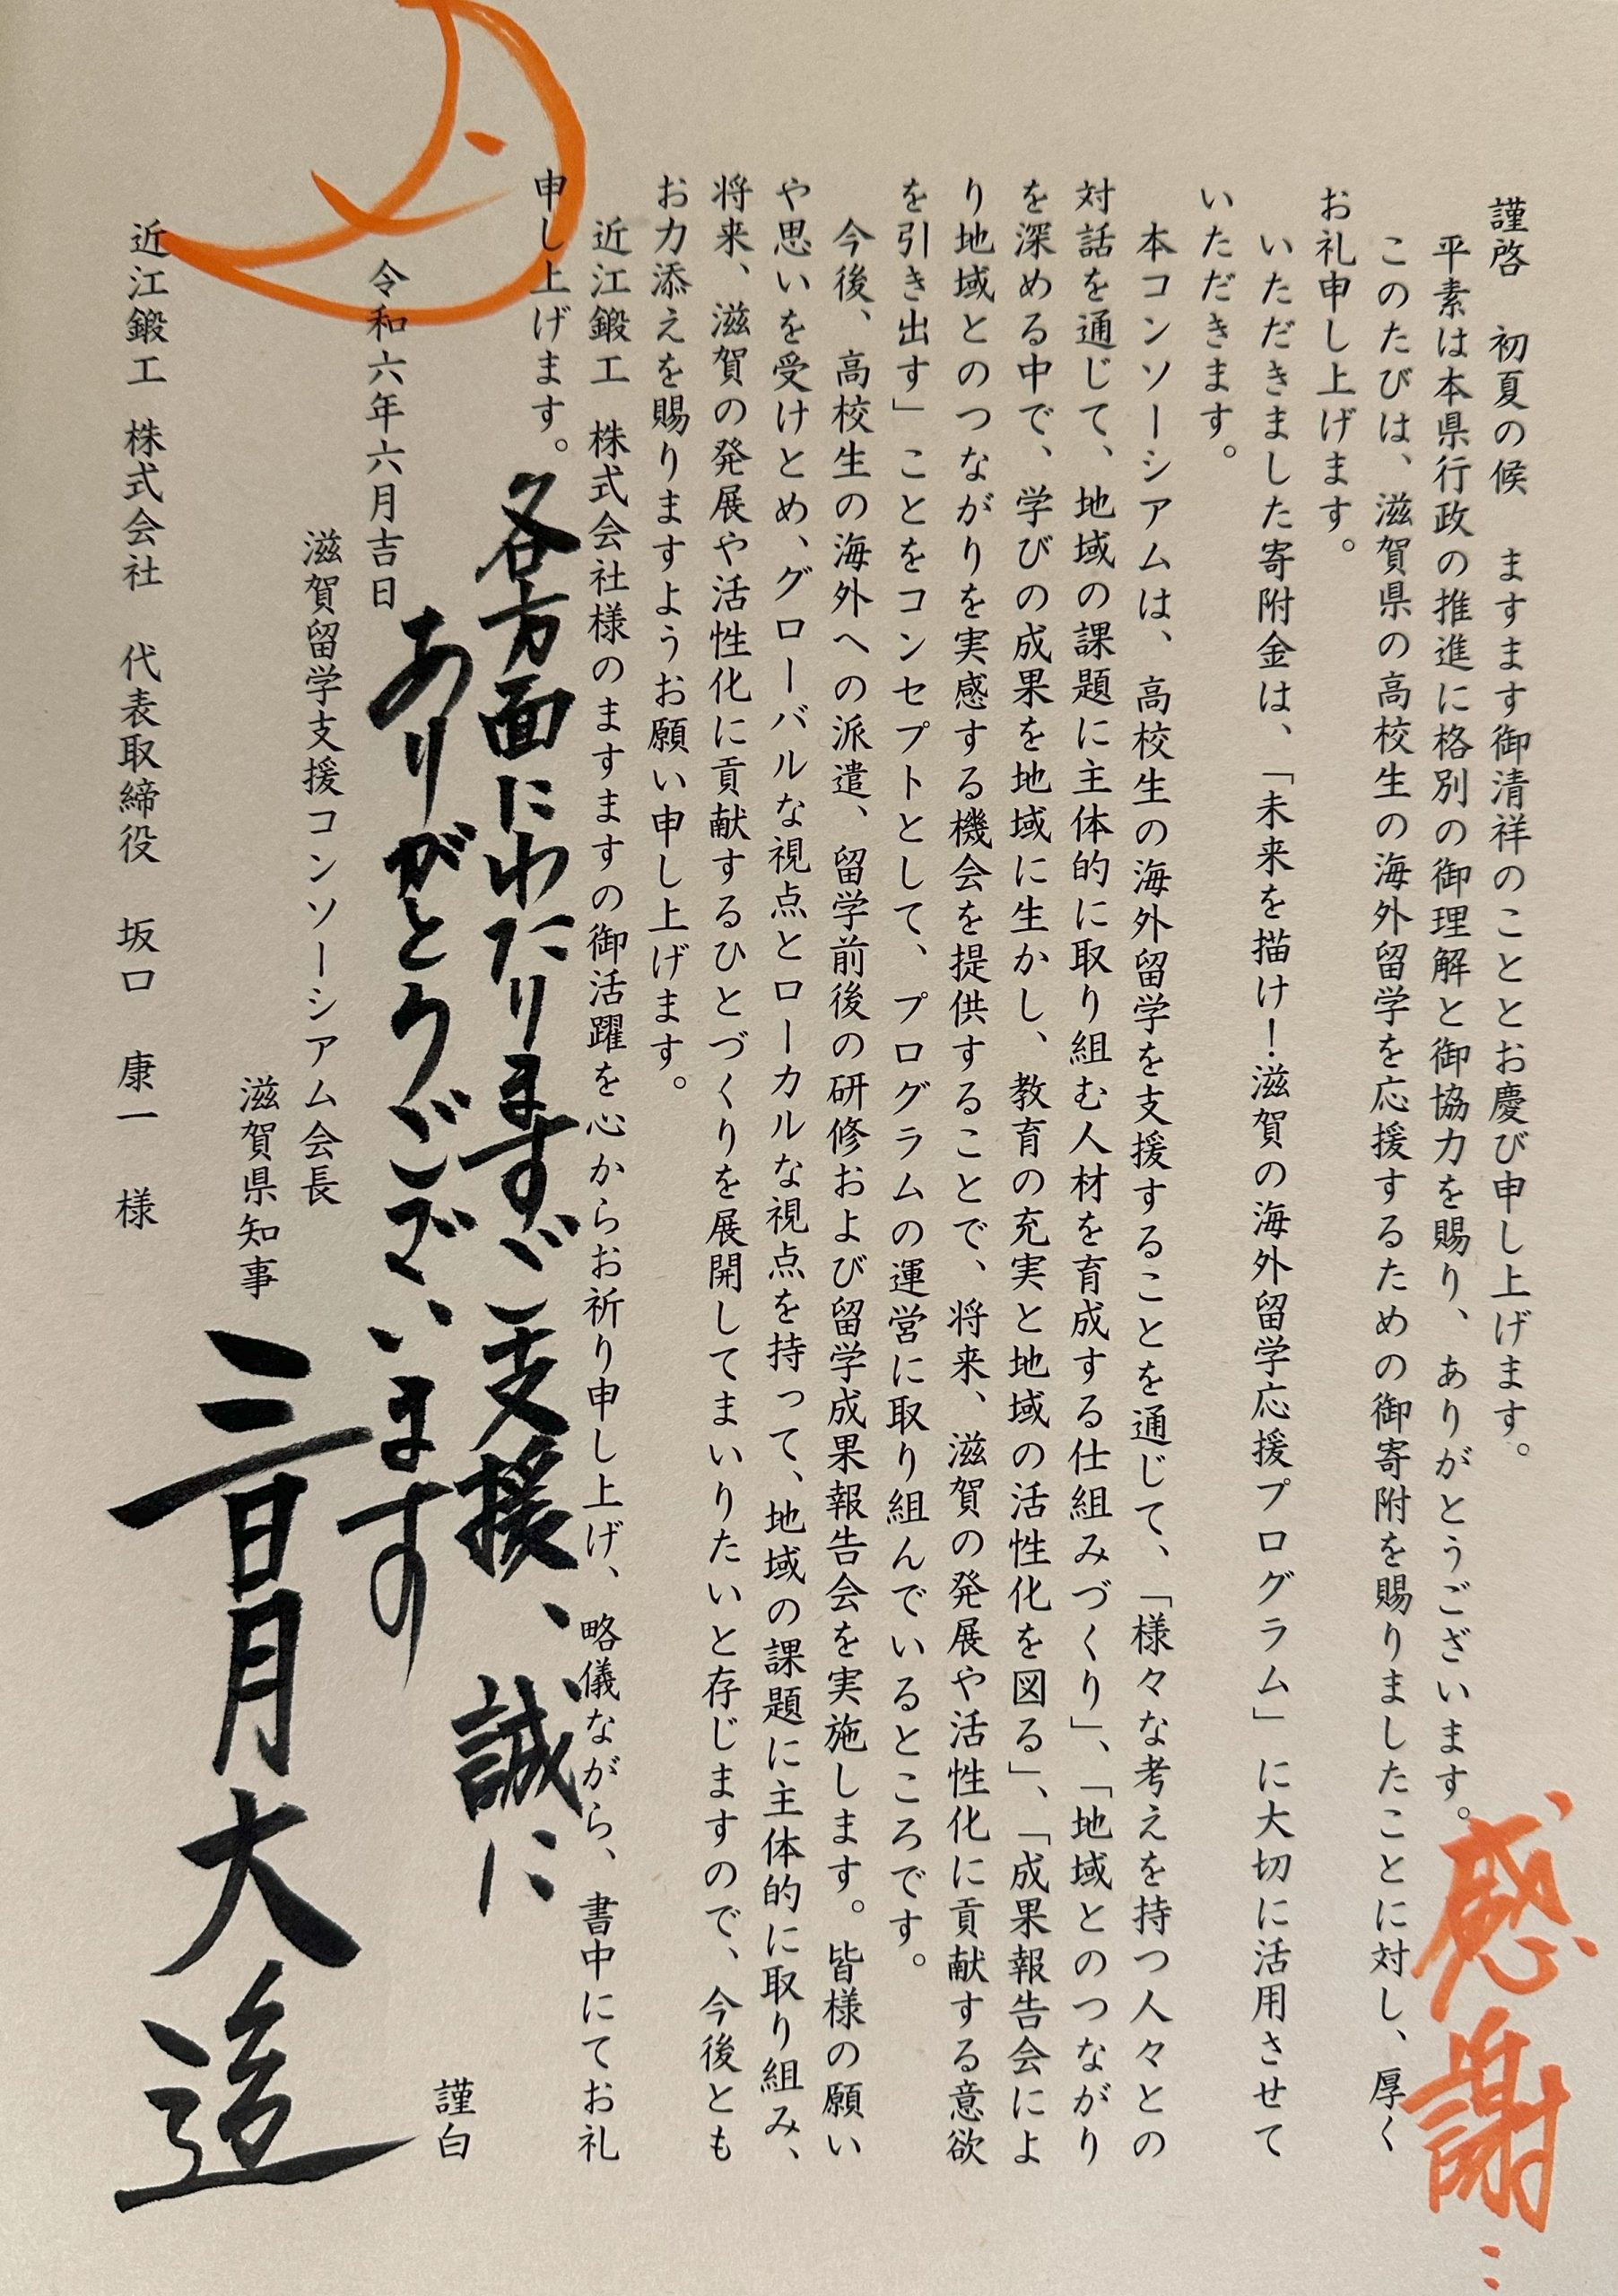 謹啓　初夏の候　ますます御清祥のこととお慶び申し上げます。
平素は本県行政の推進に格別の御理解と御協力を賜り、ありがとうございます。
このたびは、滋賀県の高校生の海外留学を応援するための御寄附を賜りましたことに対し、厚く
お礼申し上げます。
いただきました寄附金は、「未来を描け！滋賀の海外留学応援プログラム」に大切に活用させて
いただきます。
本コンソーシアムは、高校生の海外留学を支援することを通じて、「様々な考えを持つ人々との
対話を通じて、地域の課題に主体的に取り組む人材を育成する仕組みづくり」、「地域とのつながり
を深める中で、学びの成果を地域に生かし、教育の充実と地域の活性化を図る」、「成果報告会によ
り地域とのつながりを実感する機会を提供することで、将来、滋賀の発展や活性化に貢献する意欲
を引き出す」ことをコンセプトとして、プログラムの運営に取り組んでいるところです。
今後、高校生の海外への派遣、留学前後の研修および留学成果報告会を実施します。皆様の願い
や思いを受けとめ、グローバルな視点とローカルな視点を持って、地域の課題に主体的に取り組み、
将来、滋賀の発展や活性化に貢献するひとづくりを展開してまいりたいと存じますので、今後とも
お力添えを賜りますようお願い申し上げます。
近江鍛工　株式会社様のますますの御活躍を心からお祈り申し上げ、略儀ながら、書中にてお礼
申し上げます。
各方面にわたりますご支援、誠に
ありがとうございます
謹白
令和六年六月吉日
滋賀留学支援コンソーシアム会長
滋賀県知事　三日月大造
近江鍛工　株式会社　代表取締役　坂口　康一　様
感謝